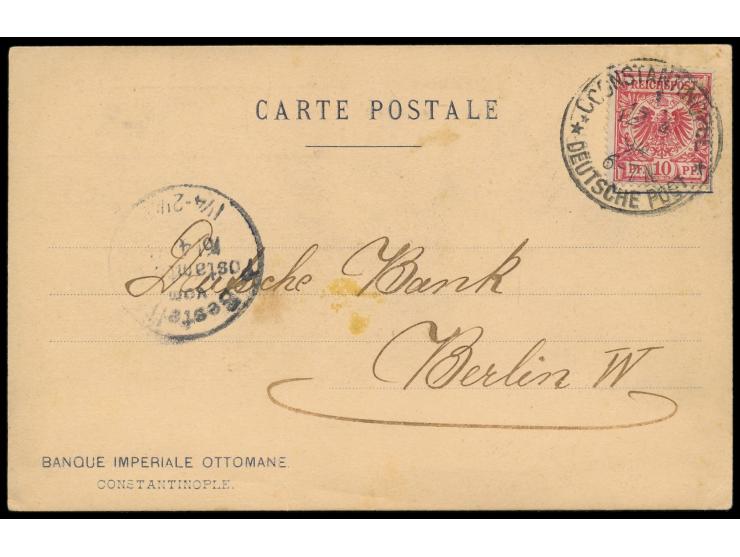 CARTE POSTALE
REICHSPOST
PF. 10 PF.
CONSTANTINOPEL
DEUTSCHE POST
Bestellt
vom
Postamt
1¼-2½
Deutsche Bank
Berlin W
BANQUE IMPERIALE OTTOMANE.
CONSTANTINOPLE.